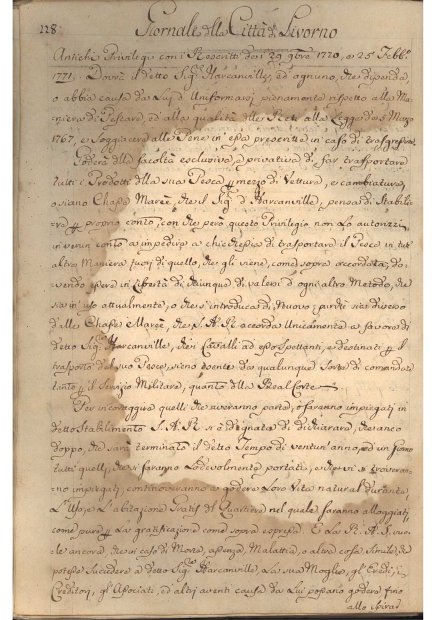 128
Giornale della Città di Livorno
Antichi Privilegi con i Rescritti de i 29 9bre 1770, e 25 Febb.o
1771. Dovrà il detto Sig.r Harcanville, ed ognuno, che dipenda,
o abbia causa da Lui d'Uniformarsi pienamente rispetto alla Ma-
niera di Pescare, ed alla qualità delle Reti alla Legge de 5 Marzo
1767, e soggiacere alle Pene in essa prescritte in caso di trasgressi.
Goderà della facoltà esclusiva, e privativa di far trasportare
tutti i Prodotti della sua Pesca per mezzo di Vetture, e cambiature,
o siano Chasse Marèe, che il Sig.r d'Harcanville, pensa di Stabili-
re per proprio conto, con che però questo Privilegio non Lo autorizzi
in verun conto a impedire a chicchessia di trasportare il Pesce in tut
altra Maniera fuori di quello, che gli viene come sopra accordata; do-
vendo essere in libertà di chiunque di valersi d'ogni altro Metodo, che
sia in uso attualmente, o che s'introduca di Nuovo; purchè sia diverso
dalle Chasse Marèe, che S. A. R. accorda Unicamente a favore di
detto Sig.r Harcanville, che i Cavalli ad esse spettanti, e destinati per il
trasporto del suo Pesce, siano esente da qualunque sorte di comandate
tanto per il Servizio Militare, quanto della Real Corte
Per incoraggire quelli che averanno parte, o saranno impiegati in
detto Stabilimento S. A. R. si è degnata di dichiarare, che anco
doppo, che sarà terminato il detto Tempo di ventun'anno, ed un Giorno
tutti quelli, che si saranno Lodevolmente portati, e che vi si troveran-
no impiegati, continoveranno a godere Loro Vita natural durante,
L'Uso, e L'abitazione Gratis del Quartiere nel quale saranno alloggiati,
come pure La gratificazione come sopra espressa. E La R. A. S. vuo-
le ancora, che in caso di Morte, assenza, Malattia, o altra cosa Simile, che
potesse Succedere a detto Sig.re Harcanville, La sua Moglie, gl'Eredi, i
Creditori, gl'Associati, ed altri aventi causa da Lui possano godere fino
allo spirar